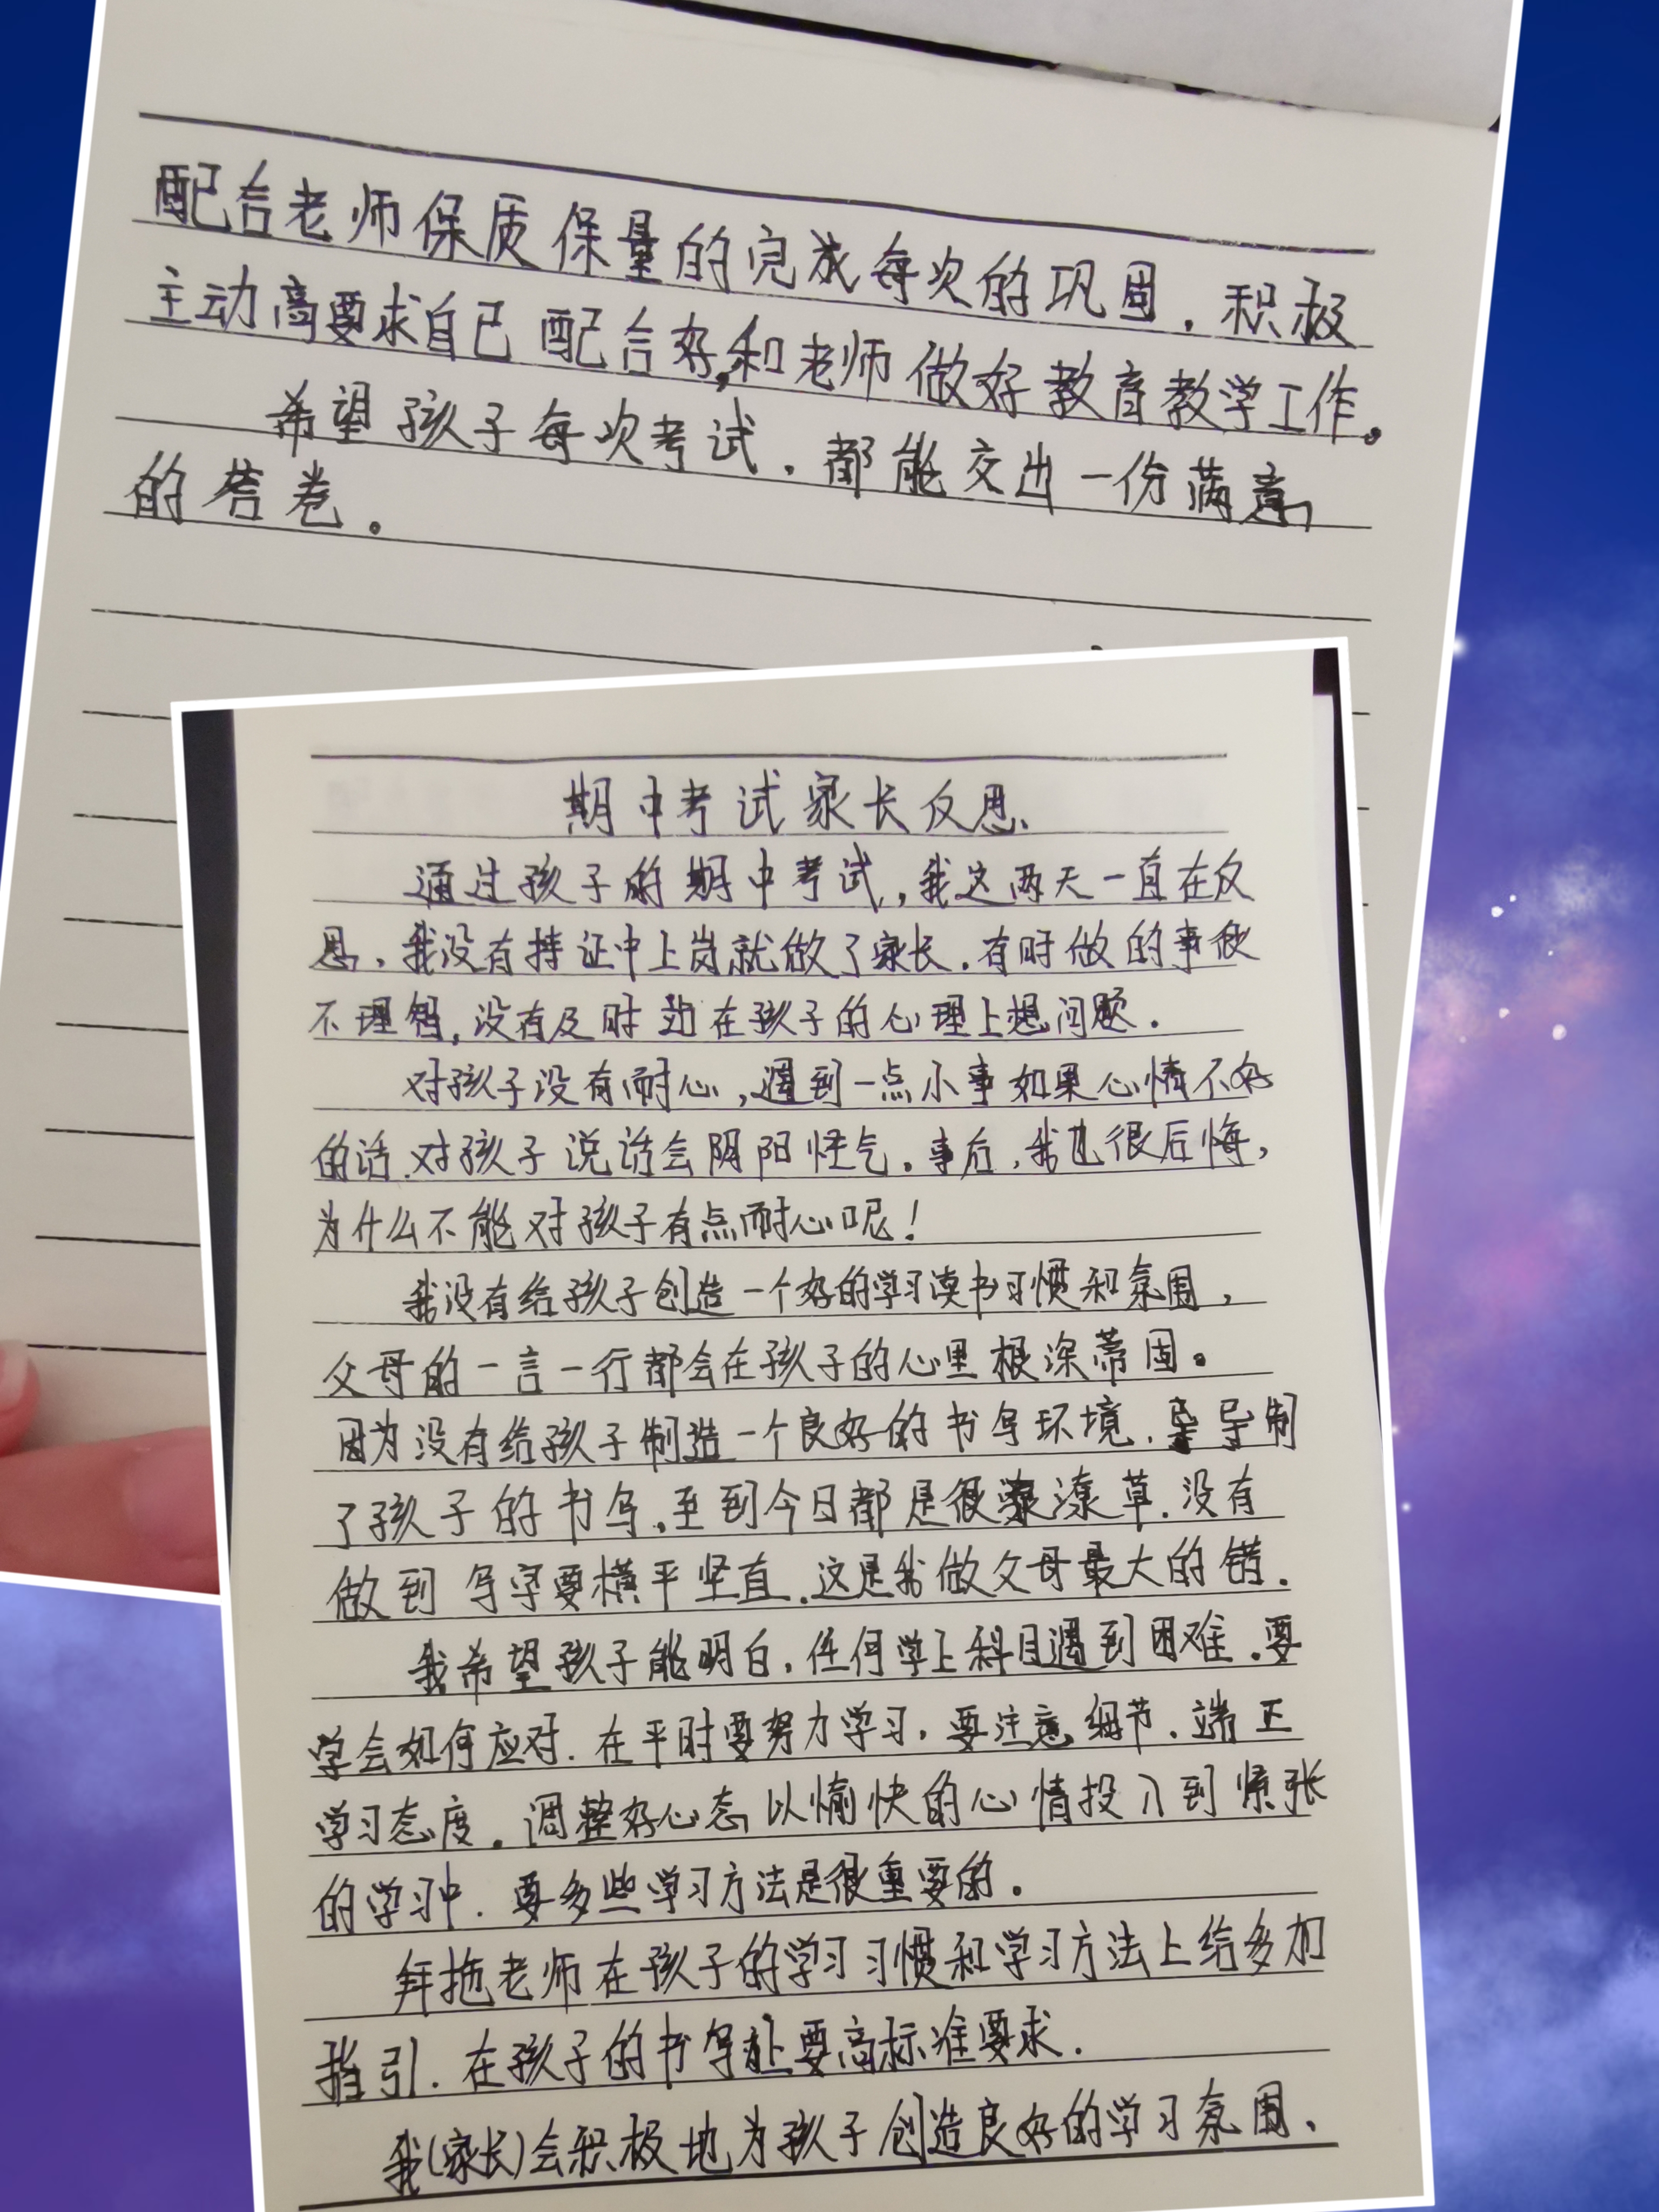 配合老师保质保量的完成每次的巩固，积极
主动高要求自己配合好,和老师做好教育教学工作。
希望孩子每次考试，都能交出一份满意
的答卷。
期中考试家长反思
通过孩子的期中考试，我这两天一直在反
思，我没有持证中上岗就做了家长，有时做的事很
不理智，没有及时站在孩子的心理上想问题．
对孩子没有耐心，遇到一点小事如果心情不好
的话．对孩子说话会阴阳怪气．事后，我也很后悔，
为什么不能对孩子有点耐心呢！
我没有给孩子创造一个好的学习读书习惯和氛围，
父母的一言一行都会在孩子的心里根深蒂固。
因为没有给孩子制造一个良好的书写环境．导制
了孩子的书写．至到今日都是很潦草．没有
做到写字要横平坚直．这是我做父母最大的错．
我希望孩子能明白．任何学上科目遇到困难．要
学会如何应对．在平时要努力学习，要注意细节．端正
学习态度．调整好心态以愉快的心情投入到紧张
的学习中．要多些学习方法是很重要的．
拜拖老师在孩子的学习习惯和学习方法上给多加
指引．在孩子的书写上要高标准要求．
我(家长)会积极地为孩子创造良好的学习氛围、